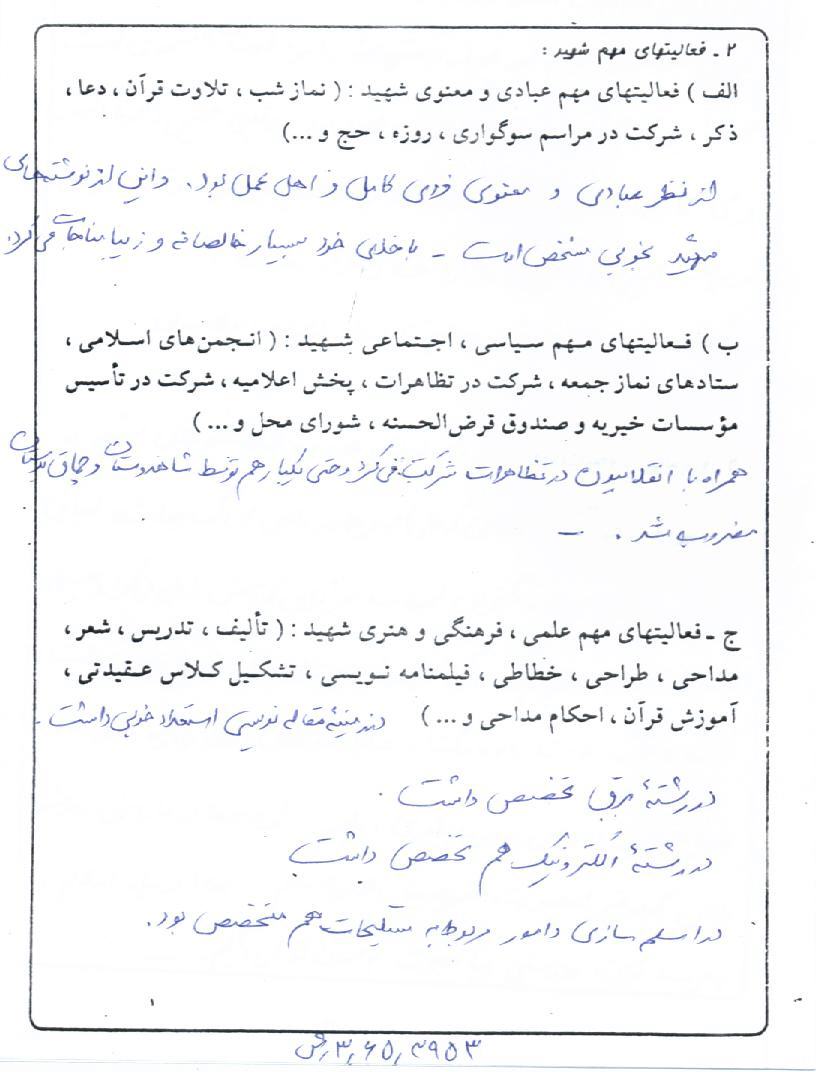 ۲ ـ فعالیتهای مهم شهید :
الف ) فعالیتهای مهم عبادی و معنوی شهید : ( نماز شب ، تلاوت قرآن ، دعا ،
ذکر ، شرکت در مراسم سوگواری ، روزه ، حج و ...)
از نظر عبادی و معنوی فردی کامل و اهل عمل بود. و این از نوشته‌های
شهید بخوبی مشخص است ـ با خدای خود بسیار خالصانه و زیبا مناجات می‌کرد.
ب ) فعالیتهای مهم سیاسی ، اجتماعی شهید : ( انجمن‌های اسلامی ،
ستادهای نماز جمعه ، شرکت در تظاهرات ، پخش اعلامیه ، شرکت در تأسیس
مؤسسات خیریه و صندوق قرض‌الحسنه ، شورای محل و ... )
همراه با انقلابیون در تظاهرات شرکت می‌کرد و حتی یکبار هم توسط شاهدوستان و چماق بدستان
مضروب شد . ـ
ج ـ فعالیتهای مهم علمی ، فرهنگی و هنری شهید : ( تألیف ، تدریس ، شعر ،
مداحی ، طراحی ، خطاطی ، فیلمنامه نویسی ، تشکیل کلاس عقیدتی ،
آموزش قرآن ، احکام مداحی و ... ) در زمینهٔ مقاله نویسی استعداد خوبی داشت .
در رشتهٔ برق تخصص داشت .
در رشتهٔ الکترونیک هم تخصص داشت
در اسلحه سازی و امور مربوط به تسلیحات هم متخصص بود.
۱